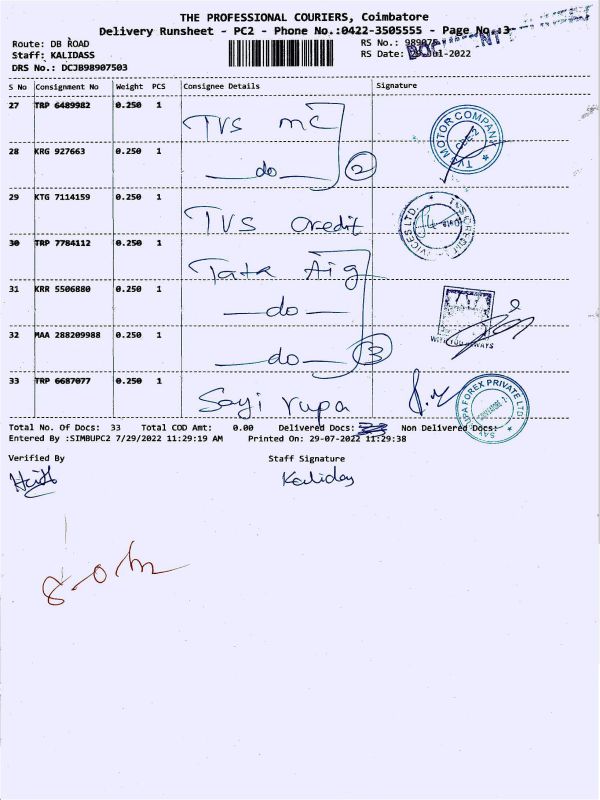 THE PROFESSIONAL COURIERS, Coimbatore
Delivery Runsheet - PC2 - Phone No.:0422-3505555 - Page No.:3
DOCUMENT
Route: DB ROAD
RS No.:
Staff: KALIDASS
RS Date: Jul-2022
DRS No.: DCJB98907503
S No Consignment No Weight PCS Consignee Details Signature
27 TRP 6489982 0.250 1 TVS mc
MOTOR COMPANY
28 KRG 927663 0.250 1 do 2
29 KTG 7114159 0.250 1 TVS Credit
30 TRP 7784112 0.250 1 Tata Aig
31 KRR 5506880 0.250 1 do
WITH YOU ALWAYS
32 MAA 288209988 0.250 1 do 3
33 TRP 6687077 0.250 1 Sayi rupa
FOREX PRIVATE LTD
Total No. Of Docs: 33 Total COD Amt: 0.00 Delivered Docs: Non Delivered Docs:
Entered By :SIMBUPC2 7/29/2022 11:29:19 AM Printed On: 29-07-2022 11:29:38
Verified By Staff Signature
Kalidas